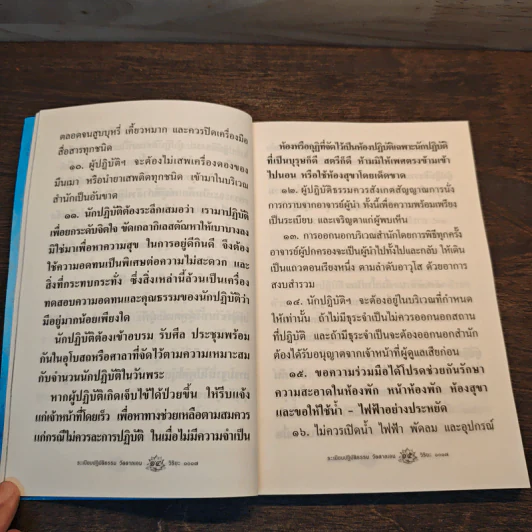 ตลอดจนสูบบุหรี่ เคี้ยวหมาก และควรปิดเครื่องมือ
สื่อสารทุกชนิด
๑๐. ผู้ปฏิบัติฯ จะต้องไม่เสพเครื่องดองของ
มึนเมา หรือนำยาเสพติดทุกชนิด เข้ามาในบริเวณ
สำนักเป็นอันขาด
๑๑. นักปฏิบัติต้องระลึกเสมอว่า เรามาปฏิบัติ
เพื่อยกระดับจิตใจ ขัดเกลากิเลสตัณหาให้เบาบางลง
มิใช่มาเพื่อหาความสุข ในการอยู่ดีกินดี จึงต้อง
ใช้ความอดทนเป็นพิเศษต่อความไม่สะดวก และ
สิ่งที่กระทบกระทั่ง ซึ่งสิ่งเหล่านี้ล้วนเป็นเครื่อง
ทดสอบความอดทนและคุณธรรมของนักปฏิบัติว่า
มีอยู่มากน้อยเพียงใด
นักปฏิบัติต้องเข้าอบรม รับศีล ประชุมพร้อม
กันในอุโบสถหรือศาลาที่จัดไว้ตามความเหมาะสม
กับจำนวนนักปฏิบัติในวันพระ
หากผู้ปฏิบัติเกิดเจ็บไข้ได้ป่วยขึ้น ให้รีบแจ้ง
แก่เจ้าหน้าที่โดยเร็ว เพื่อหาทางช่วยเหลือตามสมควร
แก่กรณีไม่ควรละการปฏิบัติ ในเมื่อไม่มีความจำเป็น
ระเบียบปฏิบัติธรรม วัดสายเขน วิริยะ ๑๐๙๗
ห้องหรือกุฏิที่จัดไว้เป็นห้องปฏิบัติเฉพาะนักปฏิบัติ
ที่เป็นบุรุษก็ดี สตรีก็ดี ห้ามมิให้เพศตรงข้ามเข้า
ไปนอน หรือใช้ห้องสุขาโดยเด็ดขาด
๑๒. ผู้ปฏิบัติธรรมควรสังเกตสัญญาณการนั่ง
การกราบจากอาจารย์ผู้นำ ทั้งนี้เพื่อความพร้อมเพรียง
เป็นระเบียบ และเจริญตาแก่ผู้พบเห็น
๑๓. การออกนอกบริเวณสำนักโดยการพิธีทุกครั้ง
อาจารย์ผู้ปกครองจะเป็นผู้นำไปทั้งไปและกลับ ให้เดิน
เป็นแถวตอนเรียงหนึ่ง ตามลำดับอาวุโส ด้วยอาการ
สงบสำรวม
๑๔. นักปฏิบัติฯ จะต้องอยู่ในบริเวณที่กำหนด
ให้เท่านั้น ถ้าไม่มีธุระจำเป็นไม่ควรออกนอกสถาน
ที่ปฏิบัติ และถ้ามีธุระจำเป็นจะต้องออกนอกสำนัก
ต้องได้รับอนุญาตจากเจ้าหน้าที่ผู้ดูแลเสียก่อน
๑๕. ขอความร่วมมือได้โปรดช่วยกันรักษา
ความสะอาดในห้องพัก หน้าห้องพัก ห้องสุขา
และขอให้ใช้น้ำ - ไฟฟ้าอย่างประหยัด
๑๖. ไม่ควรเปิดน้ำ ไฟฟ้า พัดลม และอุปกรณ์
ระเบียบปฏิบัติธรรม วิริยะ